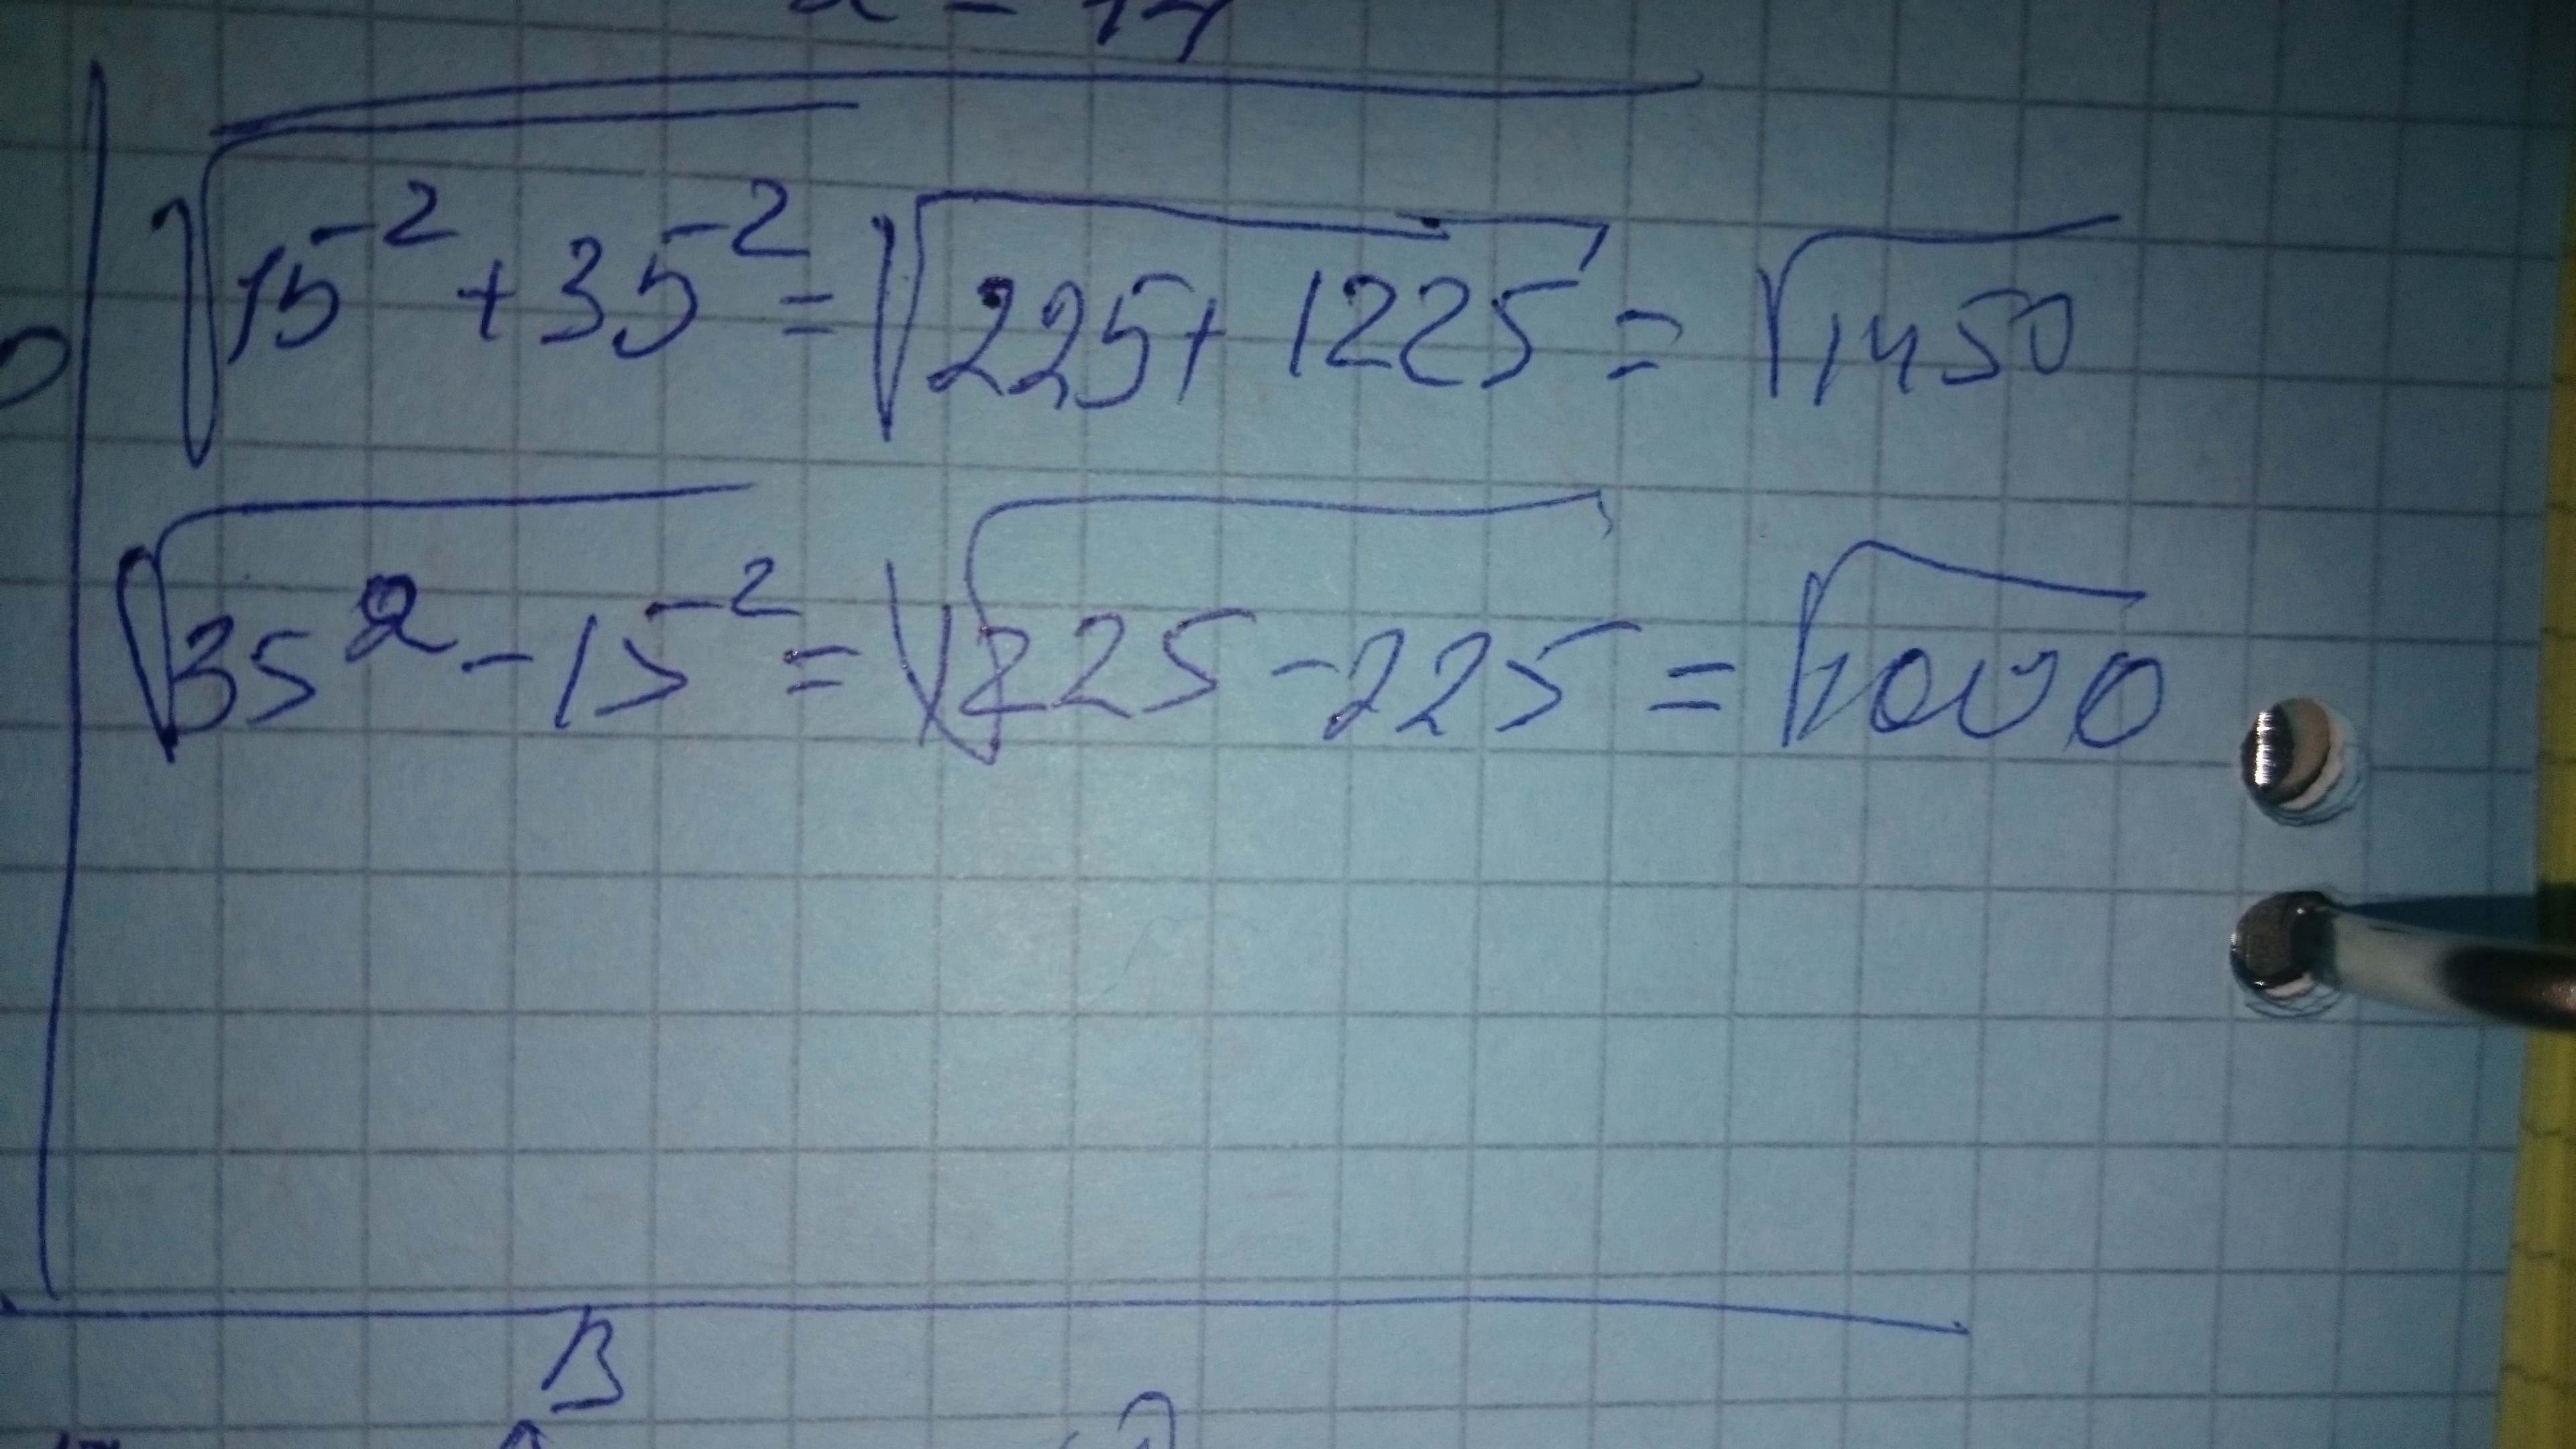 √15⁻² + 35⁻² = √225 + 1225 = √1450
√35² - 15⁻² = √1225 - 225 = √1000
B